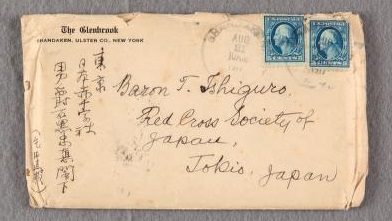 The Glenbrook
SHANDAKEN, ULSTER CO., NEW YORK
AUG
5 CENTS 5
5 CENTS 5
東京
日本赤十字社
男爵石黒忠悳閣下
Baron T. Ishiguro,
Red Cross Society of
Japan,
Tokio, Japan